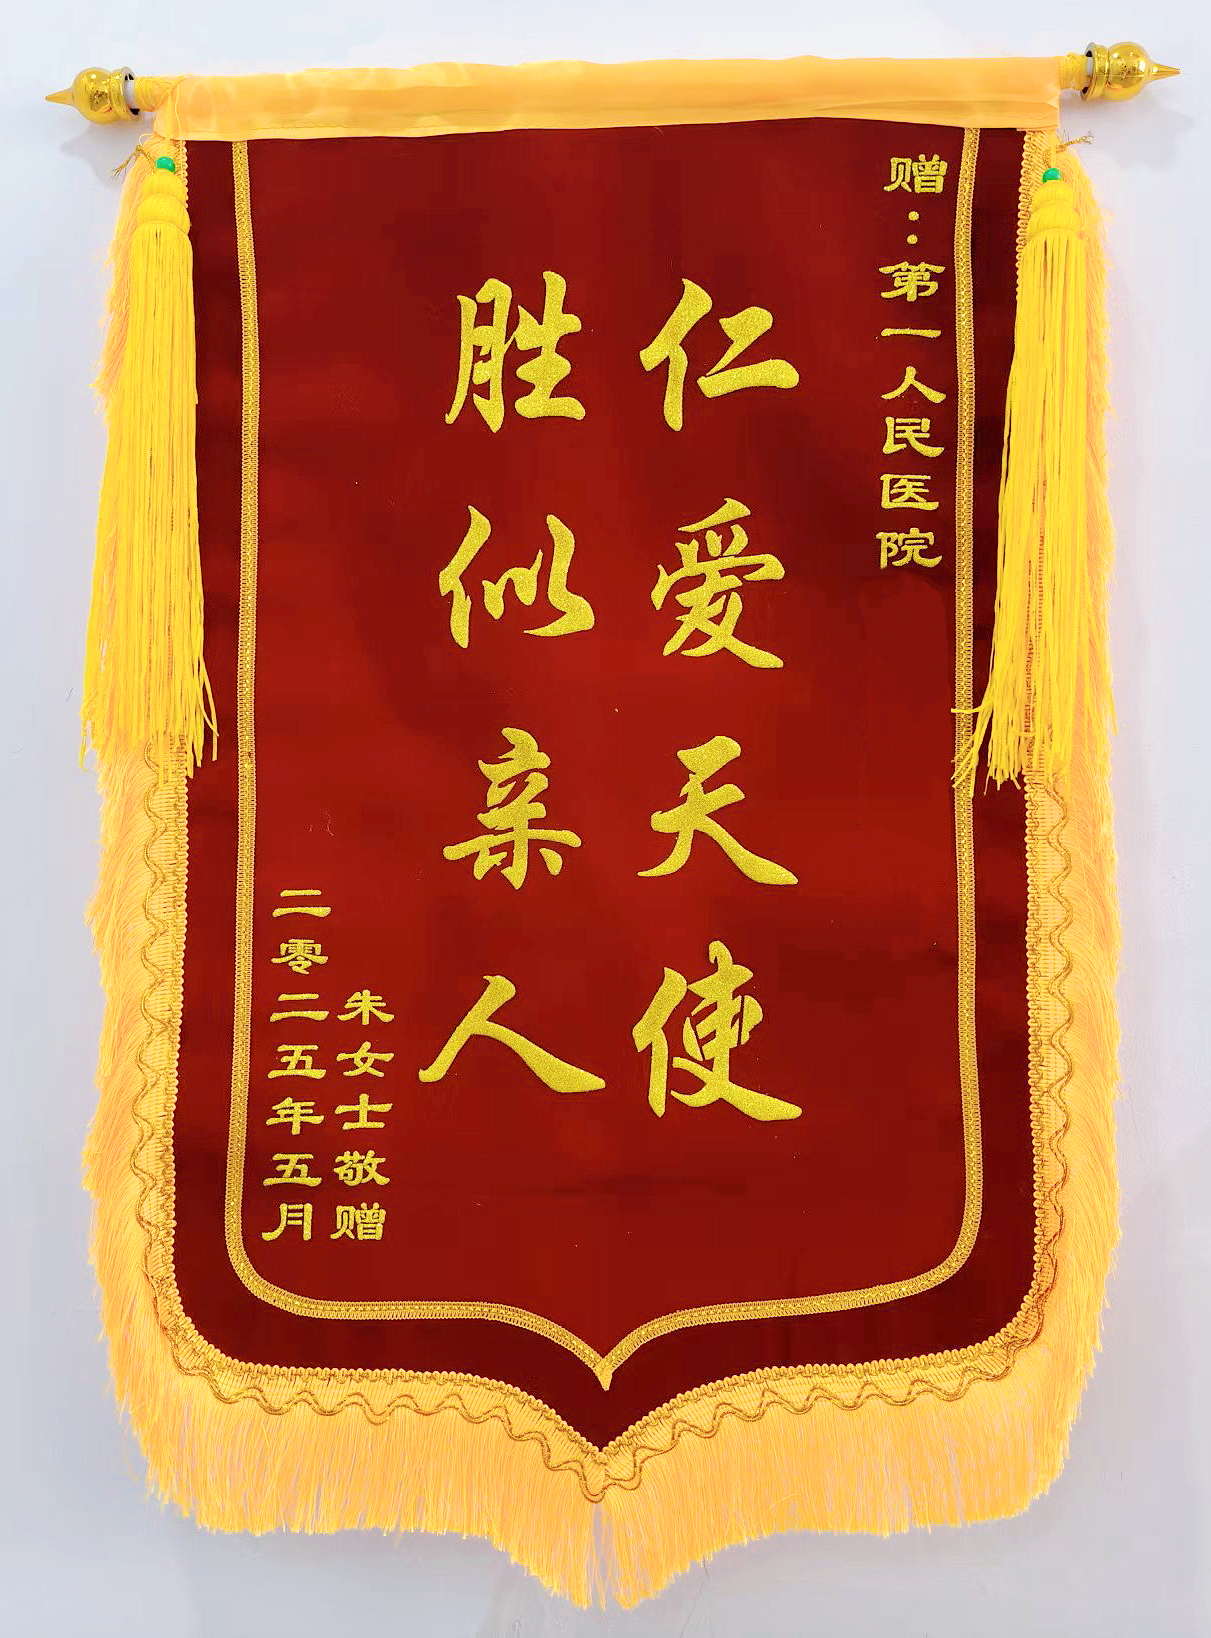 赠：第一人民医院
仁爱天使
胜似亲人
朱女士敬赠
二零二五年五月